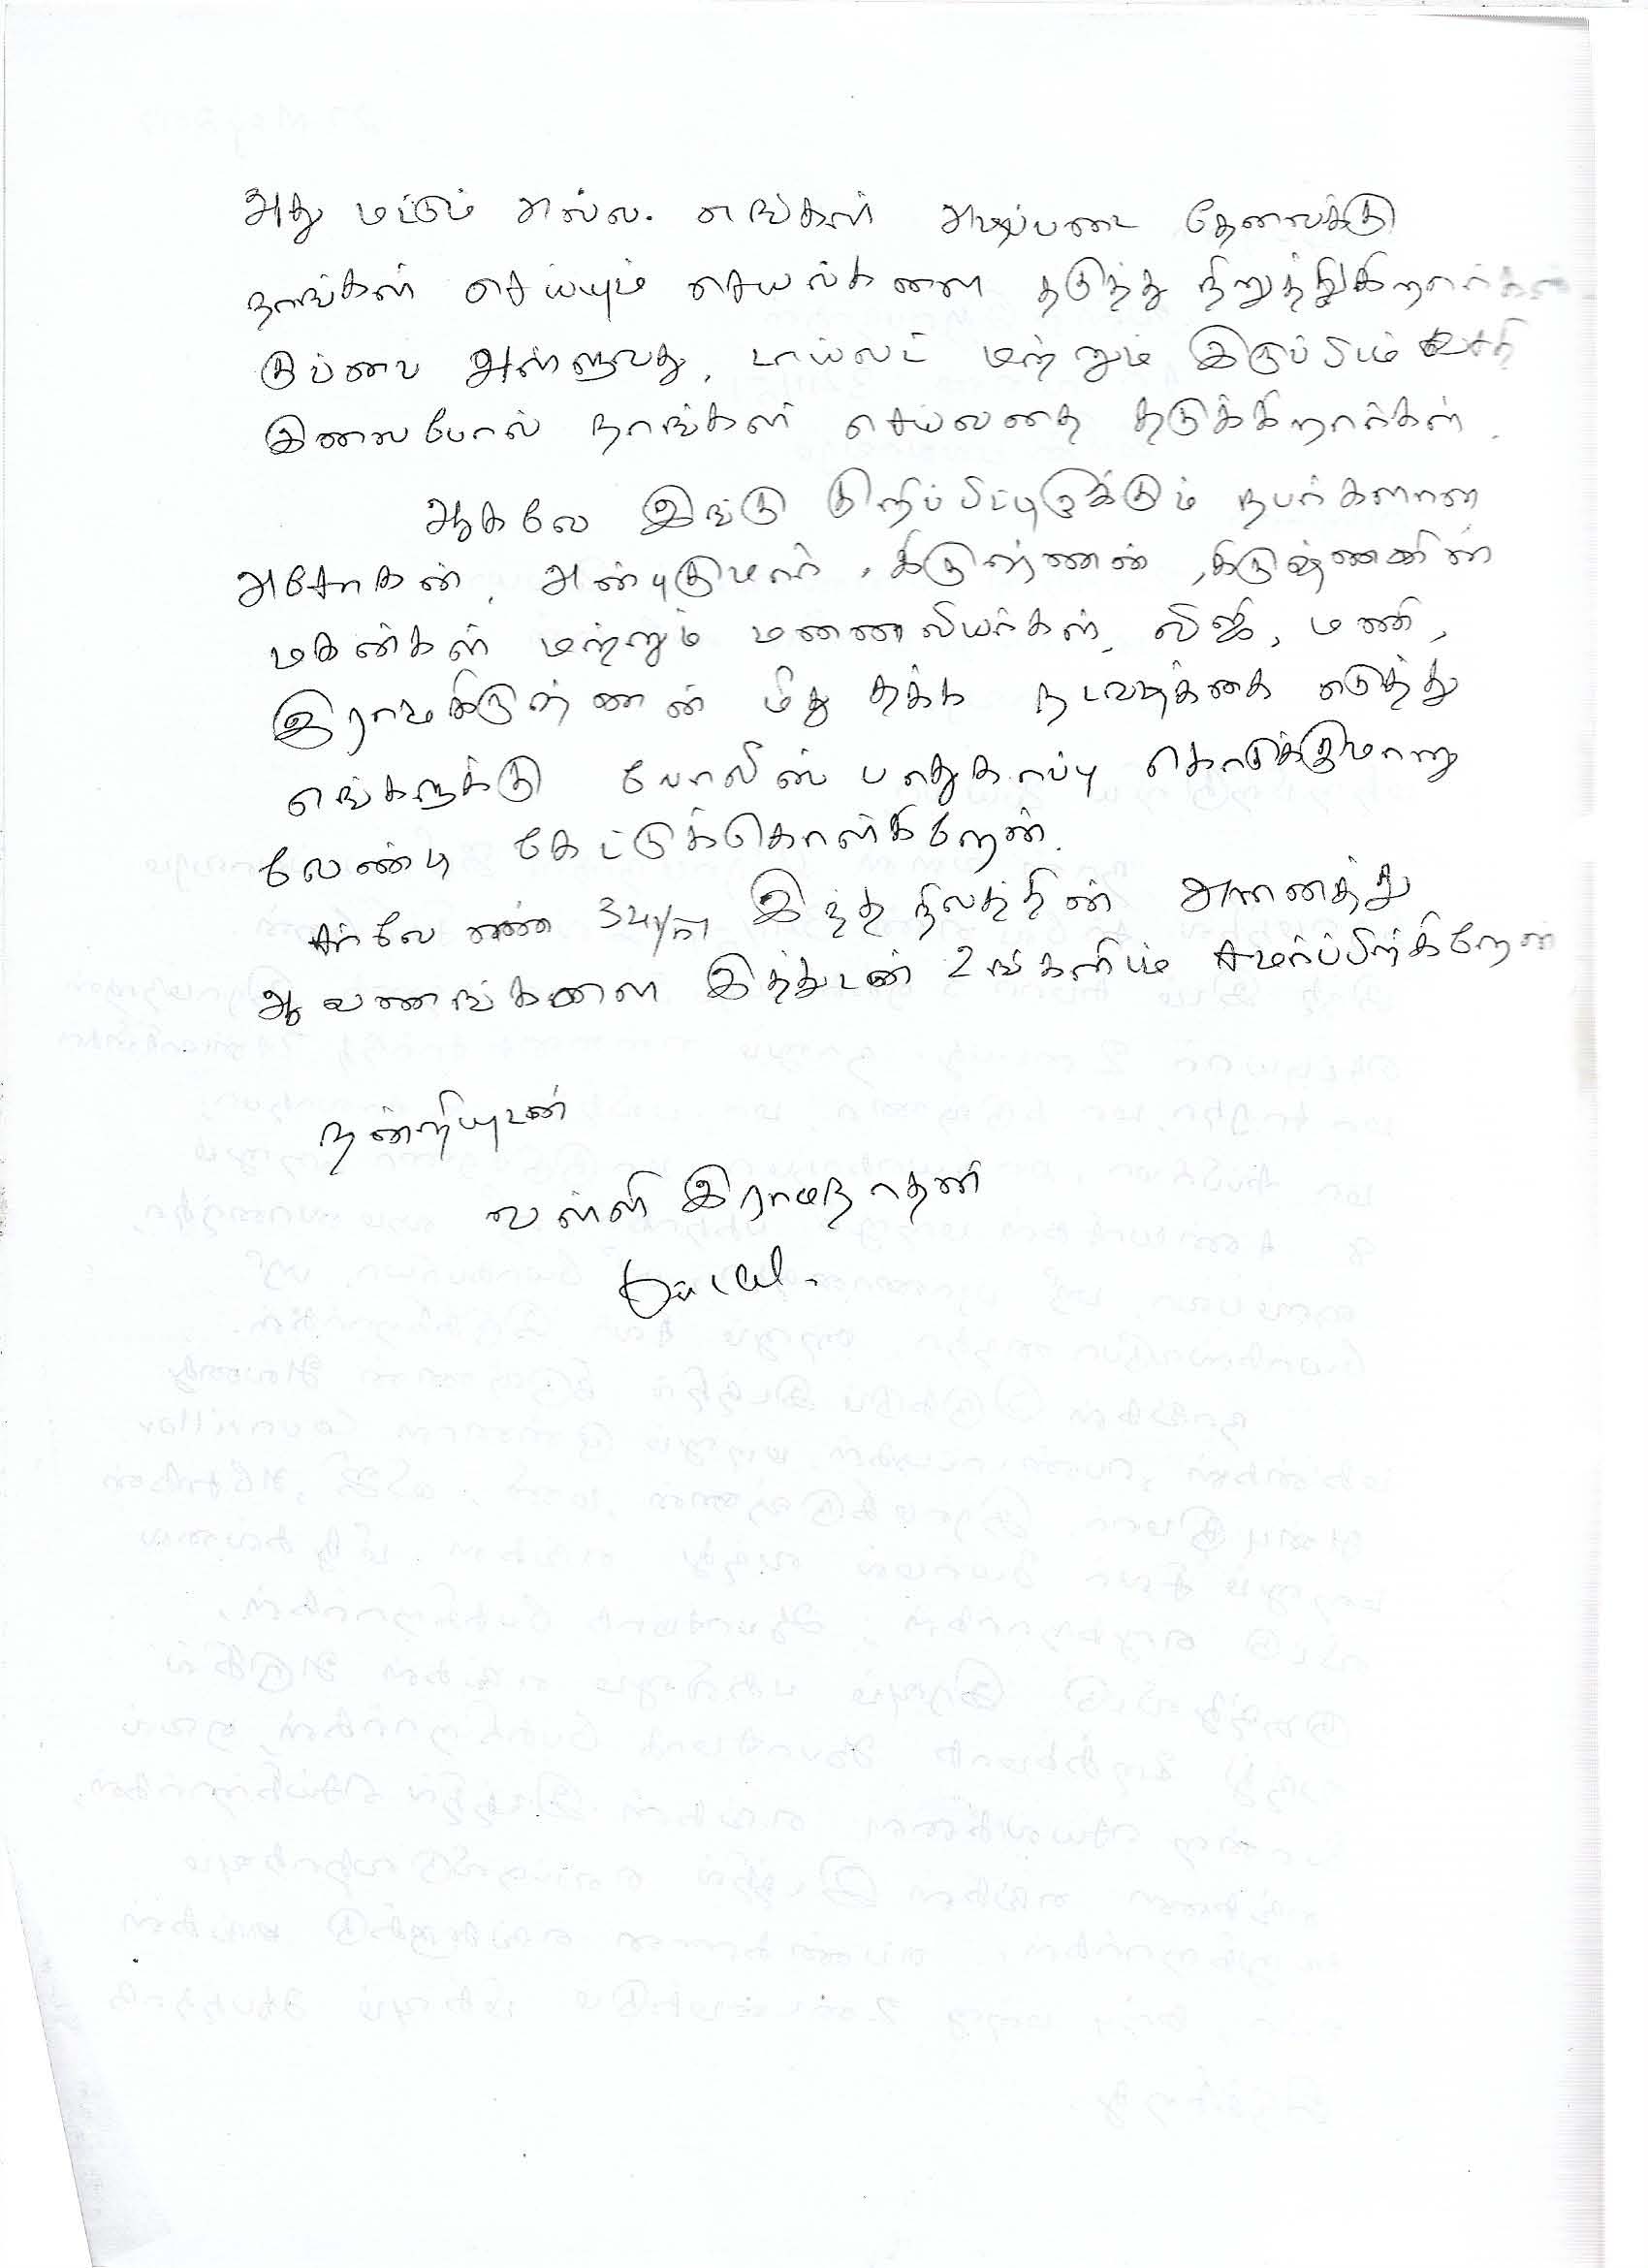 அது மட்டும் அல்ல. எங்கள் அடிப்படை தேவைக்கு
நாங்கள் செய்யும் செயல்களை தடுத்து நிறுத்துகிறார்கள்
குப்பை அள்ளுவது, டாய்லட் மற்றும் இருப்பிடம் வசதி
இவைபோல் நாங்கள் செய்வதை தடுக்கிறார்கள்.
ஆகவே இங்கு குறிப்பிட்டிருக்கும் நபர்களான
அசோகன், அன்புகுமார், கிருஷ்ணன், கிருஷ்ணனின்
மகன்கள் மற்றும் மனைவியர்கள், விஜி, மணி,
இராமகிருஷ்ணன் மீது தக்க நடவடிக்கை எடுத்து
எங்களுக்கு போலிஸ் பாதுகாப்பு கொடுக்குமாறு
வேண்டி கேட்டுக்கொள்கிறேன்.
சர்வே எண் இந்த நிலத்தின் அனைத்து
ஆவணங்களை இத்துடன் உங்களிடம் சமர்ப்பிக்கிறேன்
நன்றியுடன்
வள்ளி இராமநாதன்